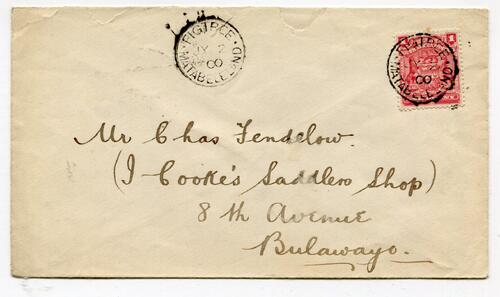 FIGTREE
JY 2
00
MATABELELAND
FIGTREE
JY
00
MATABELELAND
1
Mr Chas Fendelow.
(J Cooke's Saddlers Shop)
8th Avenue
Bulawayo.